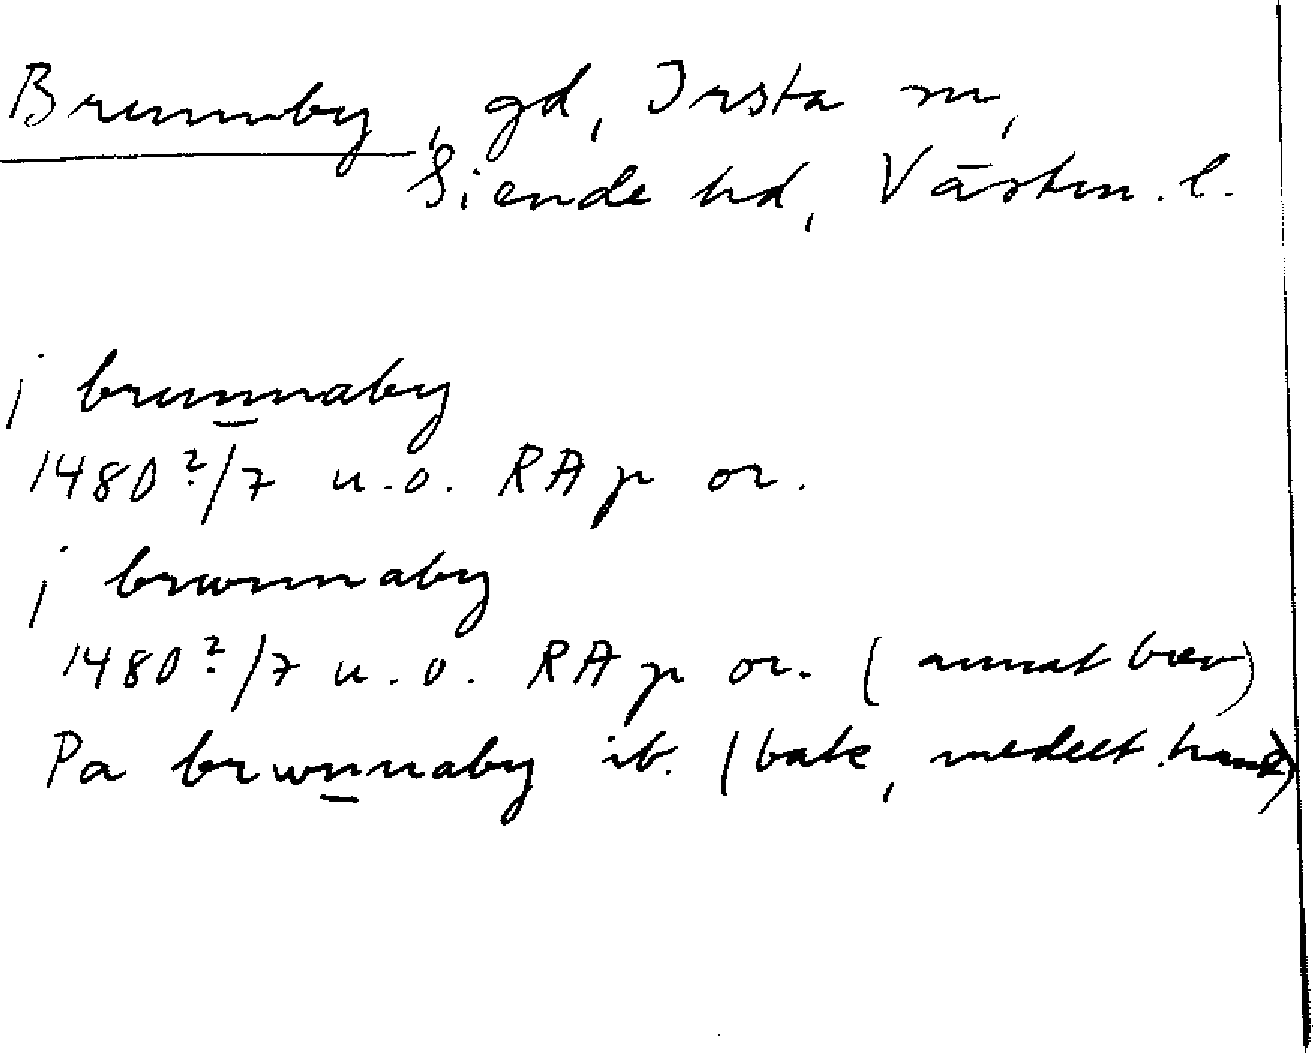 Brunnby, gd, Irsta sn,
Siende hd, Västm. l.
j brunnaby
1480 2/7 u.o. RAp or.
j brwnnaby
1480 2/7 u.o. RAp or. (annat brev)
Pa brwnnaby ib. (bak, medelt. hand)